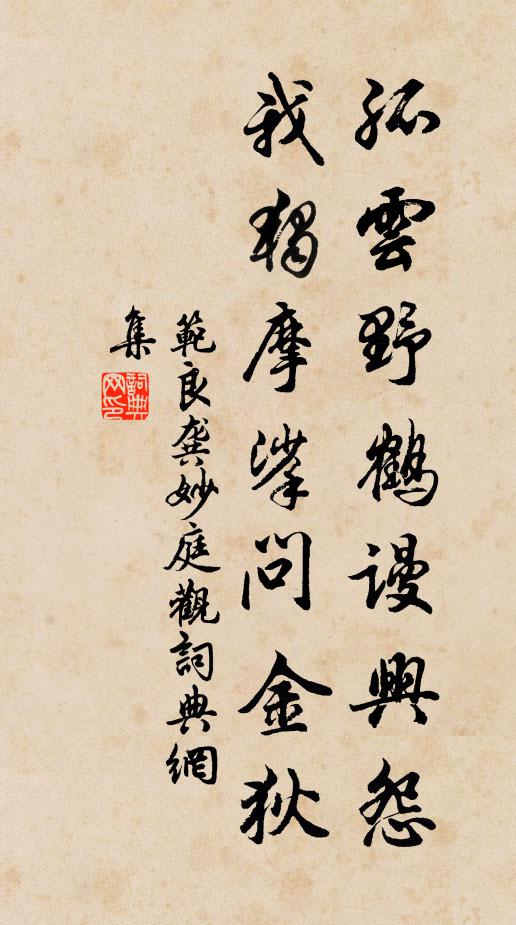 孤雲野鶴謾興怨
我獨摩挲問金狄
範良龔妙庭觀詞典網
集
詞典
网印